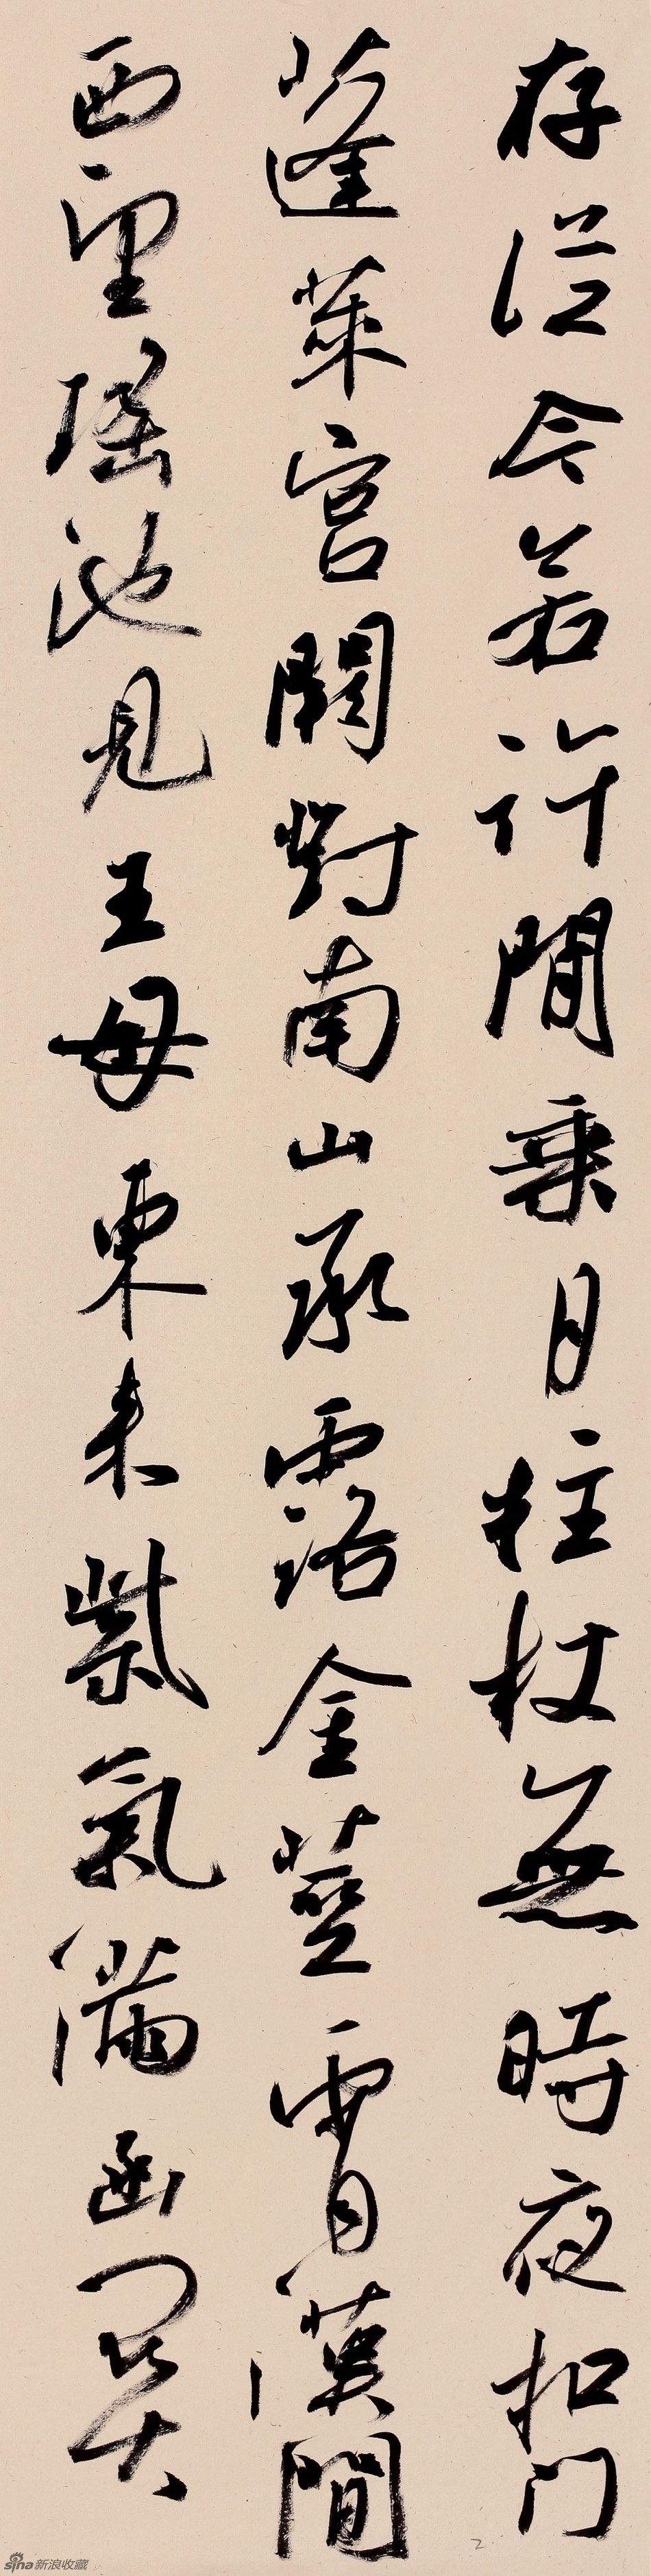 存從今若許閒乘月拄杖無時夜扣门
蓬萊宮闕對南山承露金莖霄漢間
西望瑤池見王母東來紫氣滿函關
sina新浪收藏